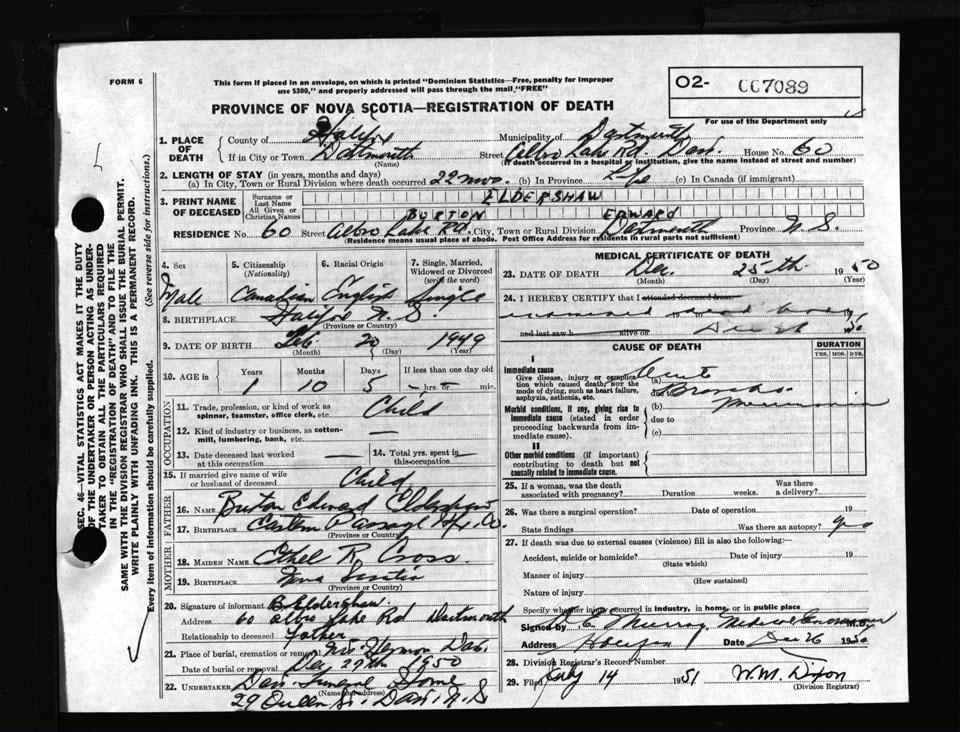 FORM 6
This form if placed in an envelope, on which is printed "Dominion Statistics—Free, penalty for improper
use $300," and properly addressed will pass through the mail "FREE"
O2- CC7089
For use of the Department only
PROVINCE OF NOVA SCOTIA—REGISTRATION OF DEATH
1. PLACE OF DEATH
County of Halifax Municipality of Dartmouth
If in City or Town Dartmouth (Name) Street Albro Lake Rd. Dart. House No. 60
(If death occurred in a hospital or institution, give the name instead of street and number)
2. LENGTH OF STAY (in years, months and days)
(a) In City, Town or Rural Division where death occurred 22 mos. (b) In Province Life (c) In Canada (if immigrant)
3. PRINT NAME OF DECEASED
Surname or Last Name ELDERSHAW
All Given or Christian Names BURTON EDWARD
RESIDENCE No. 60 Street Albro Lake Rd. City, Town or Rural Division Dartmouth Province N. S.
(Residence means usual place of abode. Post Office Address for residents in rural parts not sufficient)
4. Sex Male
5. Citizenship (Nationality) Canadian
6. Racial Origin English
7. Single, Married, Widowed or Divorced (write the word) Single
8. BIRTHPLACE Halifax N. S.
(Province or Country)
9. DATE OF BIRTH Feb 20 1949
(Month) (Day) (Year)
10. AGE in Years 1 Months 10 Days 5 If less than one day old — hrs. or — min.
OCCUPATION
11. Trade, profession, or kind of work as spinner, teamster, office clerk, etc. Child
12. Kind of industry or business, as cotton-mill, lumbering, bank, etc. —
13. Date deceased last worked at this occupation —
14. Total yrs. spent in this occupation —
15. If married give name of wife or husband of deceased Child
FATHER
16. NAME Burton Edward Eldershaw
17. BIRTHPLACE Eastern Passage Hfx. Co.
(Province or Country)
MOTHER
18. MAIDEN NAME Ethel R Cross.
19. BIRTHPLACE Nova Scotia
(Province or Country)
20. Signature of informant B Eldershaw
Address 60 Albro Lake Rd Dartmouth
Relationship to deceased Father
21. Place of burial, cremation or removal Mt. Hermon Dart.
Date of burial or removal Dec 27th 1950
22. UNDERTAKER Dart Funeral Home
(Name and address)
29 Queen St. Dart. N. S
MEDICAL CERTIFICATE OF DEATH
23. DATE OF DEATH Dec. 25th 1950
(Month) (Day) (Year)
24. I HEREBY CERTIFY that I attended deceased from
examined dead body
and last saw h alive on
CAUSE OF DEATH
DURATION
YRS. MOS. DYS.
I
Immediate cause
Give disease, injury or complication which caused death, not the mode of dying, such as heart failure, asphyxia, asthenia, etc.
(a) Acute
Broncho
due to
Morbid conditions, if any, giving rise to immediate cause (stated in order proceeding backwards from immediate cause).
(b) Pneumonia
due to
(c)
II
Other morbid conditions (if important) contributing to death but not causally related to immediate cause.
25. If a woman, was the death associated with pregnancy? Duration weeks. Was there a delivery?
26. Was there a surgical operation? Date of operation 19
State findings Was there an autopsy? yes
27. If death was due to external causes (violence) fill in also the following:—
Accident, suicide or homicide? (State which) Date of injury 19
Manner of injury
(How sustained)
Nature of injury
Specify whether injury occurred in industry, in home, or in public place
Signed by Murray, Medical Examiner M.D.
Address Halifax Date Dec 26 1950
28. Division Registrar's Record Number
29. Filed July 14 1951 W. M. Dixon
(Division Registrar)
SEC. 46—VITAL STATISTICS ACT MAKES IT THE DUTY
OF THE UNDERTAKER OR PERSON ACTING AS UNDER-
TAKER TO OBTAIN ALL THE PARTICULARS REQUIRED
IN THE "REGISTRATION OF DEATH" AND TO FILE THE
SAME WITH THE DIVISION REGISTRAR WHO SHALL ISSUE THE BURIAL PERMIT.
WRITE PLAINLY WITH UNFADING INK. THIS IS A PERMANENT RECORD.
Every item of information should be carefully supplied. (See reverse side for instructions.)